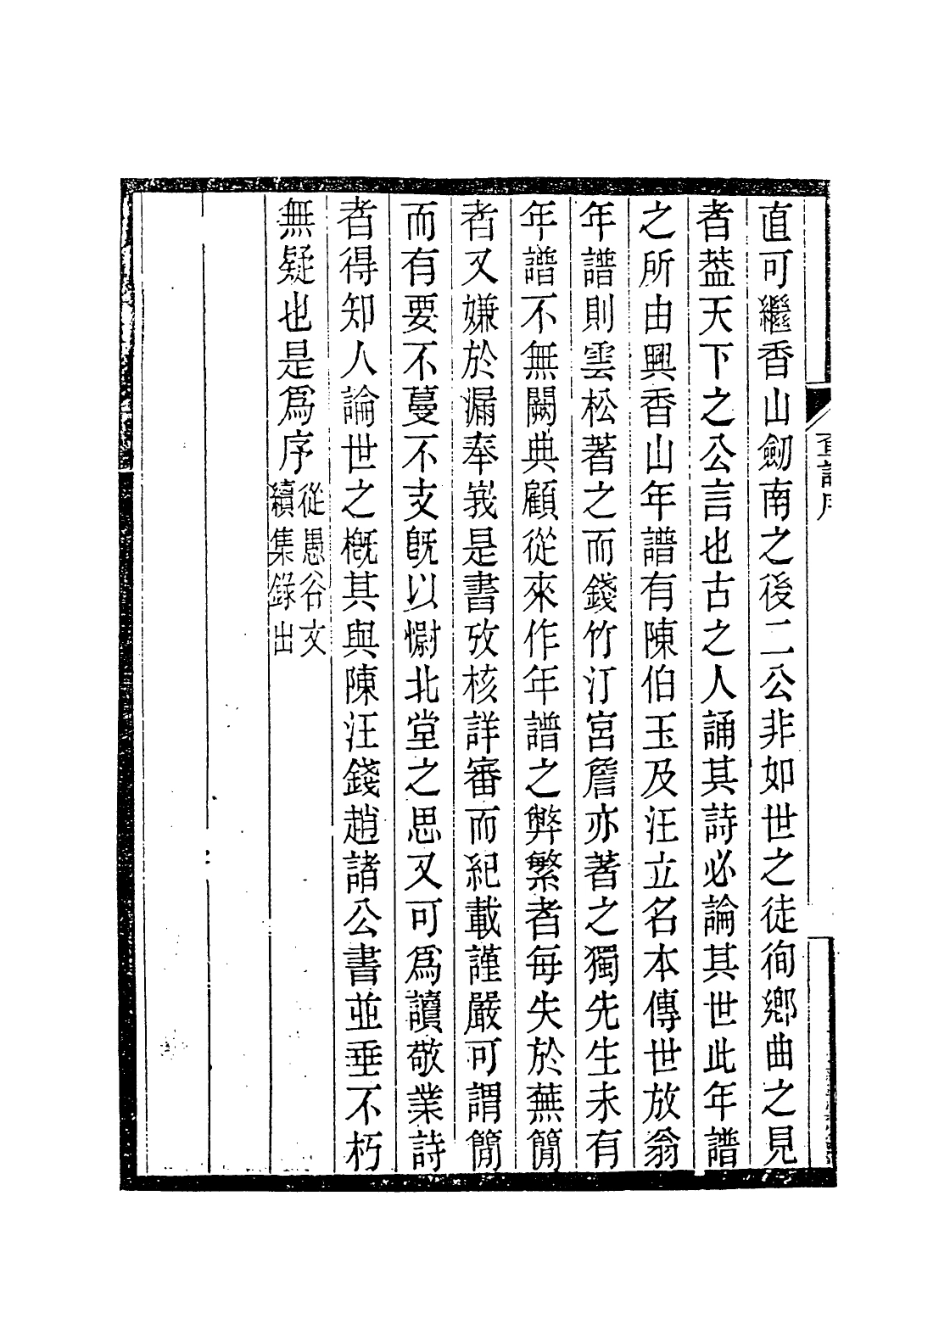 直可繼香山劒南之後二公非如世之徒徇鄕曲之見
者葢天下之公言也古之人誦其詩必論其世此年譜
之所由興香山年譜有陳伯玉及汪立名本傳世放翁
年譜則雲松著之而錢竹汀宮詹亦著之獨先生未有
年譜不無闕典顧從來作年譜之弊繁者每失於蕪簡
者又嫌於漏奉峩是書攷核詳審而紀載謹嚴可謂簡
而有要不蔓不支旣以慰北堂之思又可爲讀敬業詩
者得知人論世之槪其與陳汪錢趙諸公書並垂不朽
無疑也是爲序
從愚谷文
續集錄出